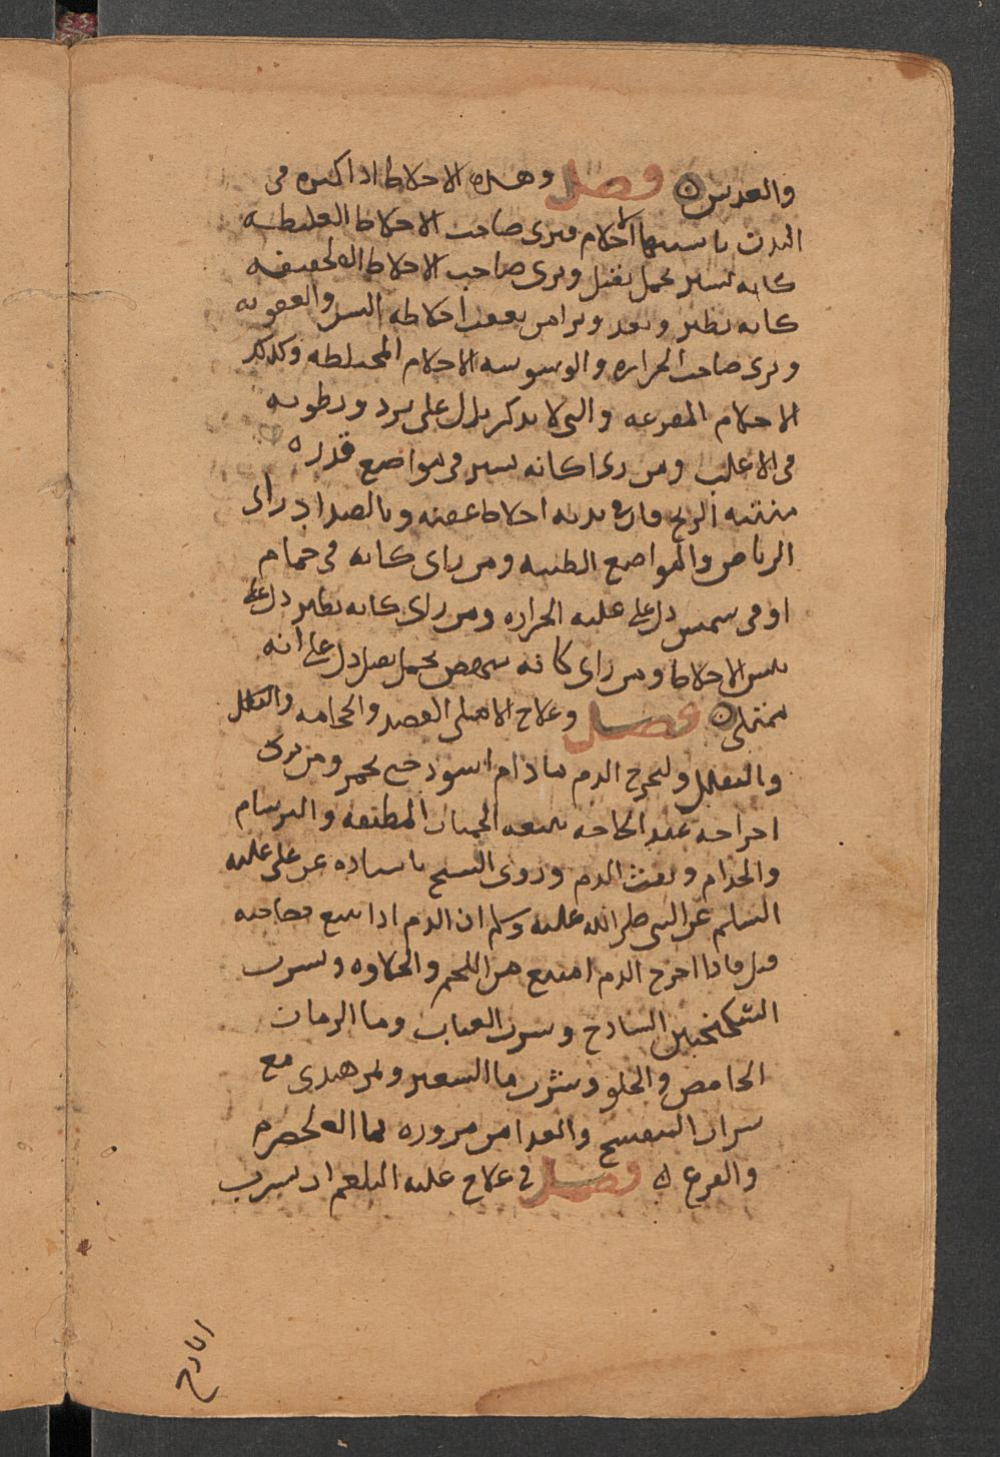 والعدس ۞ فصل وهذه الاخلاط اذا كثرت في
البدن باسبابها الاحلام فيرى صاحب الاخلاط الغليظه
كانه يسير بحمل ثقيل ويرى صاحب الاخلاط الخفيفه
كانه يطير ويعدو ويرا من اخلاطه النتن والعفونه
ويرى صاحب الحراره والوسوسه الاحلام المختلطه وكذلك
الاحلام المفزعه والتي لا تذكر تدل على برد ورطوبه
في الاغلب ومن راى كانه يسير في مواضع قذره
منتنه الريح فان في بدنه اخلاط عفنه وبالضد اذ راى
الرياض والمواضع الطيبه ومن راى كانه في حمام
او في شمس دل على غلبه الحراره ومن راى كانه يطير دل على
يبس الاخلاط ومن راى كانه ينهض بحمل ثقيل دل على انه
ممتلى ۞ فصل وعلاج الامتلى الفصد والحجامه
والتعلل وليخرج الدم ما دام اسود حتى يحمر ومن ترك
اخراجه عند الحاجه الحميات المطبقه والبرسام
والجذام ونفث الدم وروى الشيخ باسناده عن علي عليه
السلم عن النبي صلى الله عليه وسلم ان الدم اذا تبيغ بصاحبه
قتل فاذا اخرج الدم امتنع من اللحم والحلاوه وشرب
السكنجبين السادج وشرب العناب وما الرمان
الحامض والحلو وشرب ما الشعير وتمر هندى مع
شراب البنفسج والغدا من مزوره بما الحصرم
والقرع ۞ فصل في علاج غلبه البلغم ان يشرب